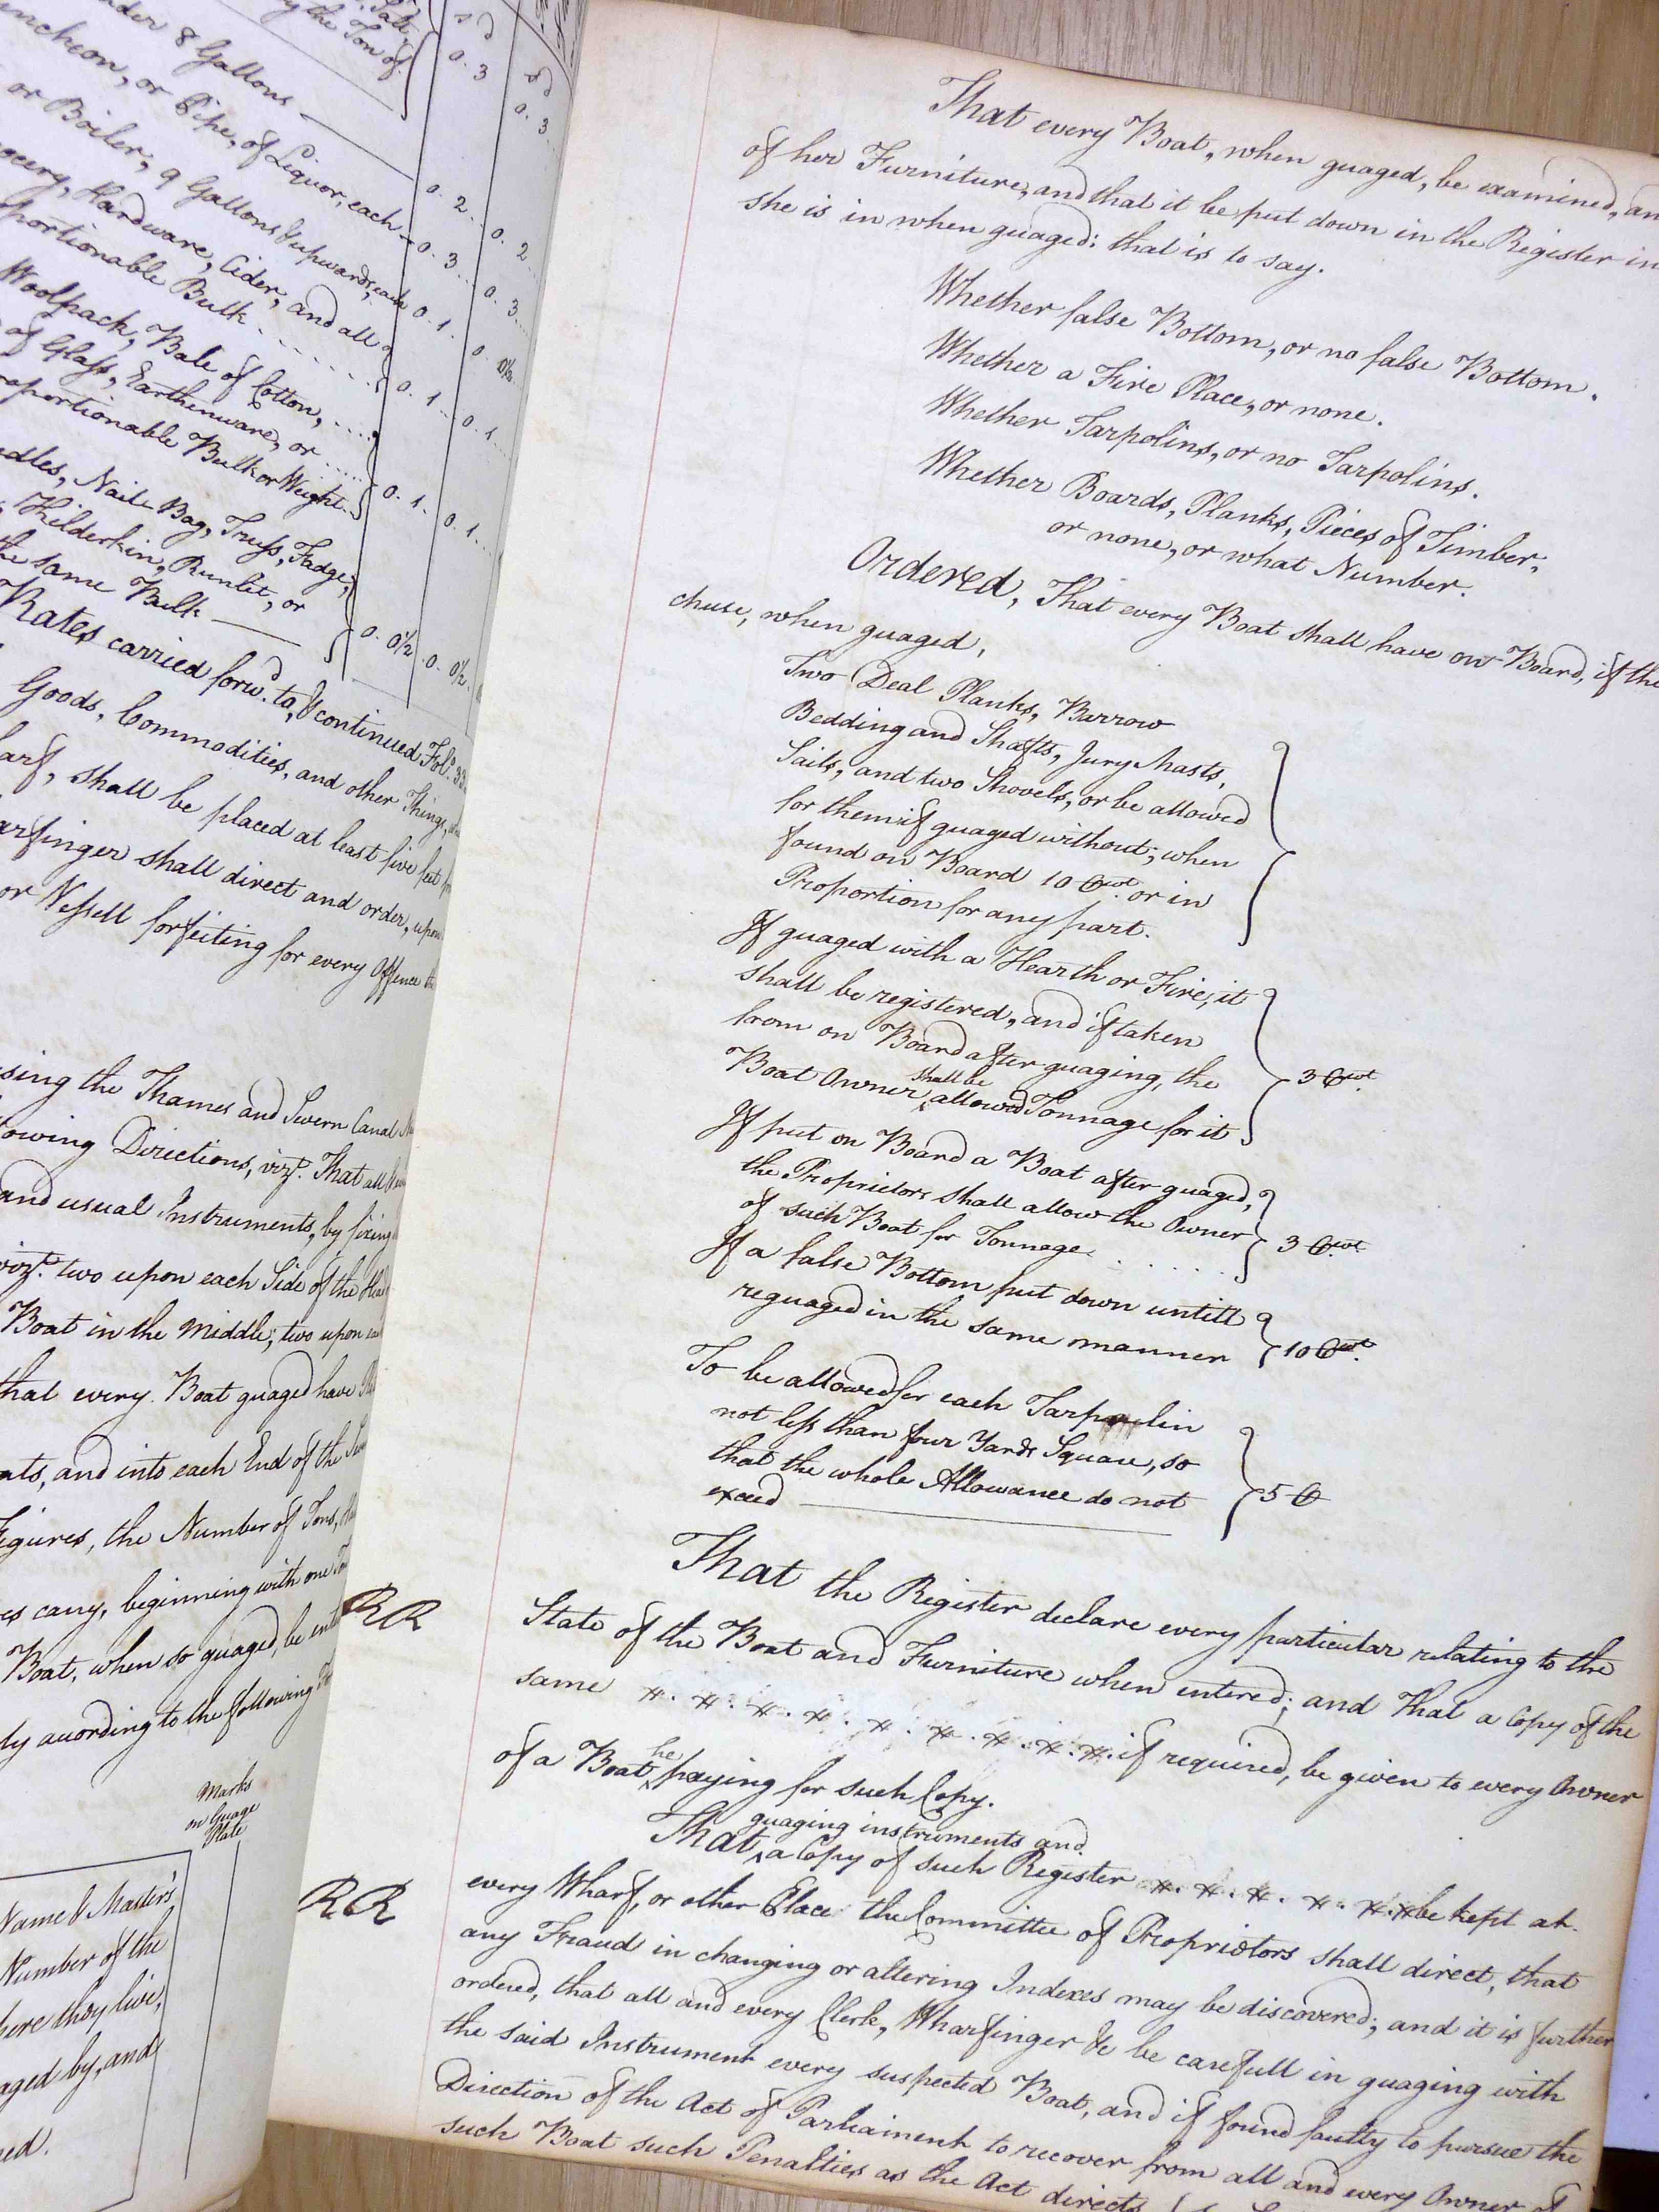 Salt,
by the Ton of
s d
0. 3
s d
0. 3
under 8 Gallons
0. 2
0. 2
Puncheon, or Pipe, of Liquor, each
0. 3
0. 3
or Boiler, 9 Gallons & upwards, each
0. 1
0. 0½
Grocery, Hardware, Cider, and all
proportionable Bulk
0. 1
0. 1
Woolpack, Bale of Cotton,
of Glass, Earthenware, or
proportionable Bulk or Weight
0. 1
0. 1
Nail Bag, Truss, Fadge,
Kilderkin, Runlet, or
the same Bulk
0. 0½
0. 0½
Rates carried forwd. to, & continued Folo. 33
Goods, Commodities, and other Things,
shall be placed at least five feet
Wharfinger shall direct and order, upon
or Vessell forfeiting for every Offence the
using the Thames and Severn Canal
following Directions, vizt. That all
and usual Instruments, by fixing
vizt. two upon each Side of the Head
Boat in the Middle; two upon each
that every Boat guaged have
and into each End of the
Figures, the Number of Tons,
carry, beginning with one Ton
Boat, when so guaged, be entered
according to the following
Marks
on Guage
Plate
Name & Master's
Number of the
where they live,
guaged by, and
That every Boat, when guaged, be examined, an
of her Furniture, and that it be put down in the Register in
she is in when guaged: that is to say.
Whether false Bottom, or no false Bottom.
Whether a Fire Place, or none.
Whether Tarpolins, or no Tarpolins.
Whether Boards, Planks, Pieces of Timber,
or none, or what Number.
Ordered, That every Boat shall have on Board, if the
chuse, when guaged,
Two Deal Planks, Barrow
Bedding and Shafts, Jury Masts,
Sails, and two Shovels, or be allowed
for them if guaged without; when
found on Board 10 Cwt. or in
Proportion for any part.
If guaged with a Hearth or Fire, it
shall be registered, and if taken
from on Board after guaging, the
Boat Owner shall be allowed Tonnage for it
3 Cwt.
If put on Board a Boat after guaged,
the Proprietors shall allow the Owner
of such Boat for Tonnage
3 Cwt.
If a false Bottom put down untill
reguaged in the same manner
10 Cwt.
To be allowed for each Tarpaulin
not less than four Yards Square, so
that the whole Allowance do not
exceed
5 C
RR
That the Register declare every particular relating to the
State of the Boat and Furniture when entered; and That a Copy of the
same if required, be given to every Owner
of a Boat he paying for such Copy.
RR
That guaging instruments and a Copy of such Register be kept at
every Wharf, or other Place the Committee of Proprietors shall direct, that
any Fraud in changing or altering Indexes may be discovered; and it is further
ordered, that all and every Clerk, Wharfinger &c be carefull in guaging with
the said Instrument every suspected Boat, and if found faulty to pursue the
Direction of the Act of Parliament to recover from all and every Owner of
such Boat such Penalties as the Act directs